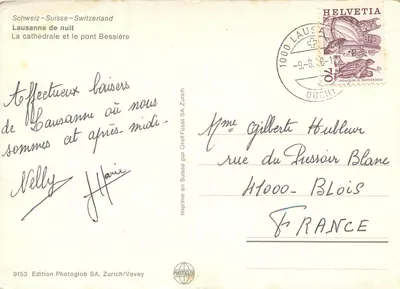 Schweiz - Suisse - Switzerland
Lausanne de nuit
La cathédrale et le pont Bessière
HELVETIA
70
1000 LAUSANNE
OUCHY
Affectueux baisers
de Lausanne où nous
sommes cet après-midi.
Nelly
Mme Gilberte
rue du Pussoir Blanc
41000 - BLOIS
FRANCE
Imprimé en Suisse par Orell Füssli SA Zurich
9153 Edition Photoglob SA, Zurich/Vevey
PHOTOGLOB